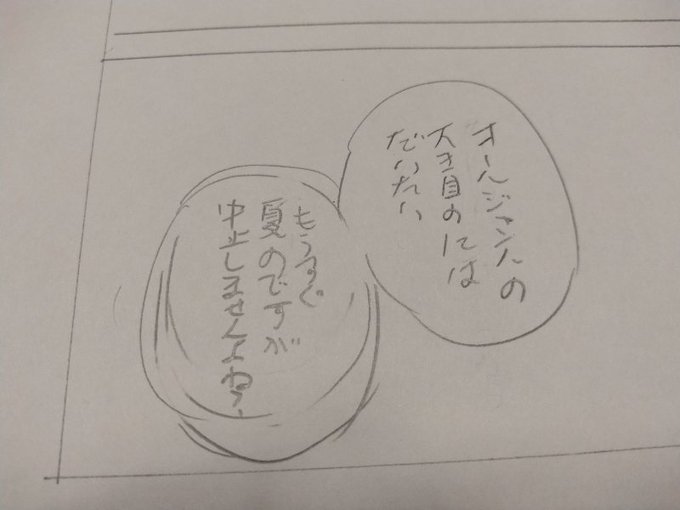 オールジャンルの
大き目のには
だいたい
もうすぐ
夏のですが
中止しませんよね？